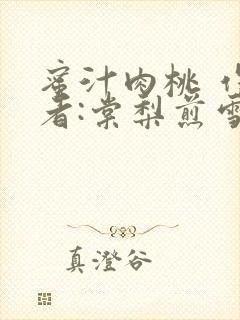 蜜汁肉桃
者:棠梨煎雪
真澄谷